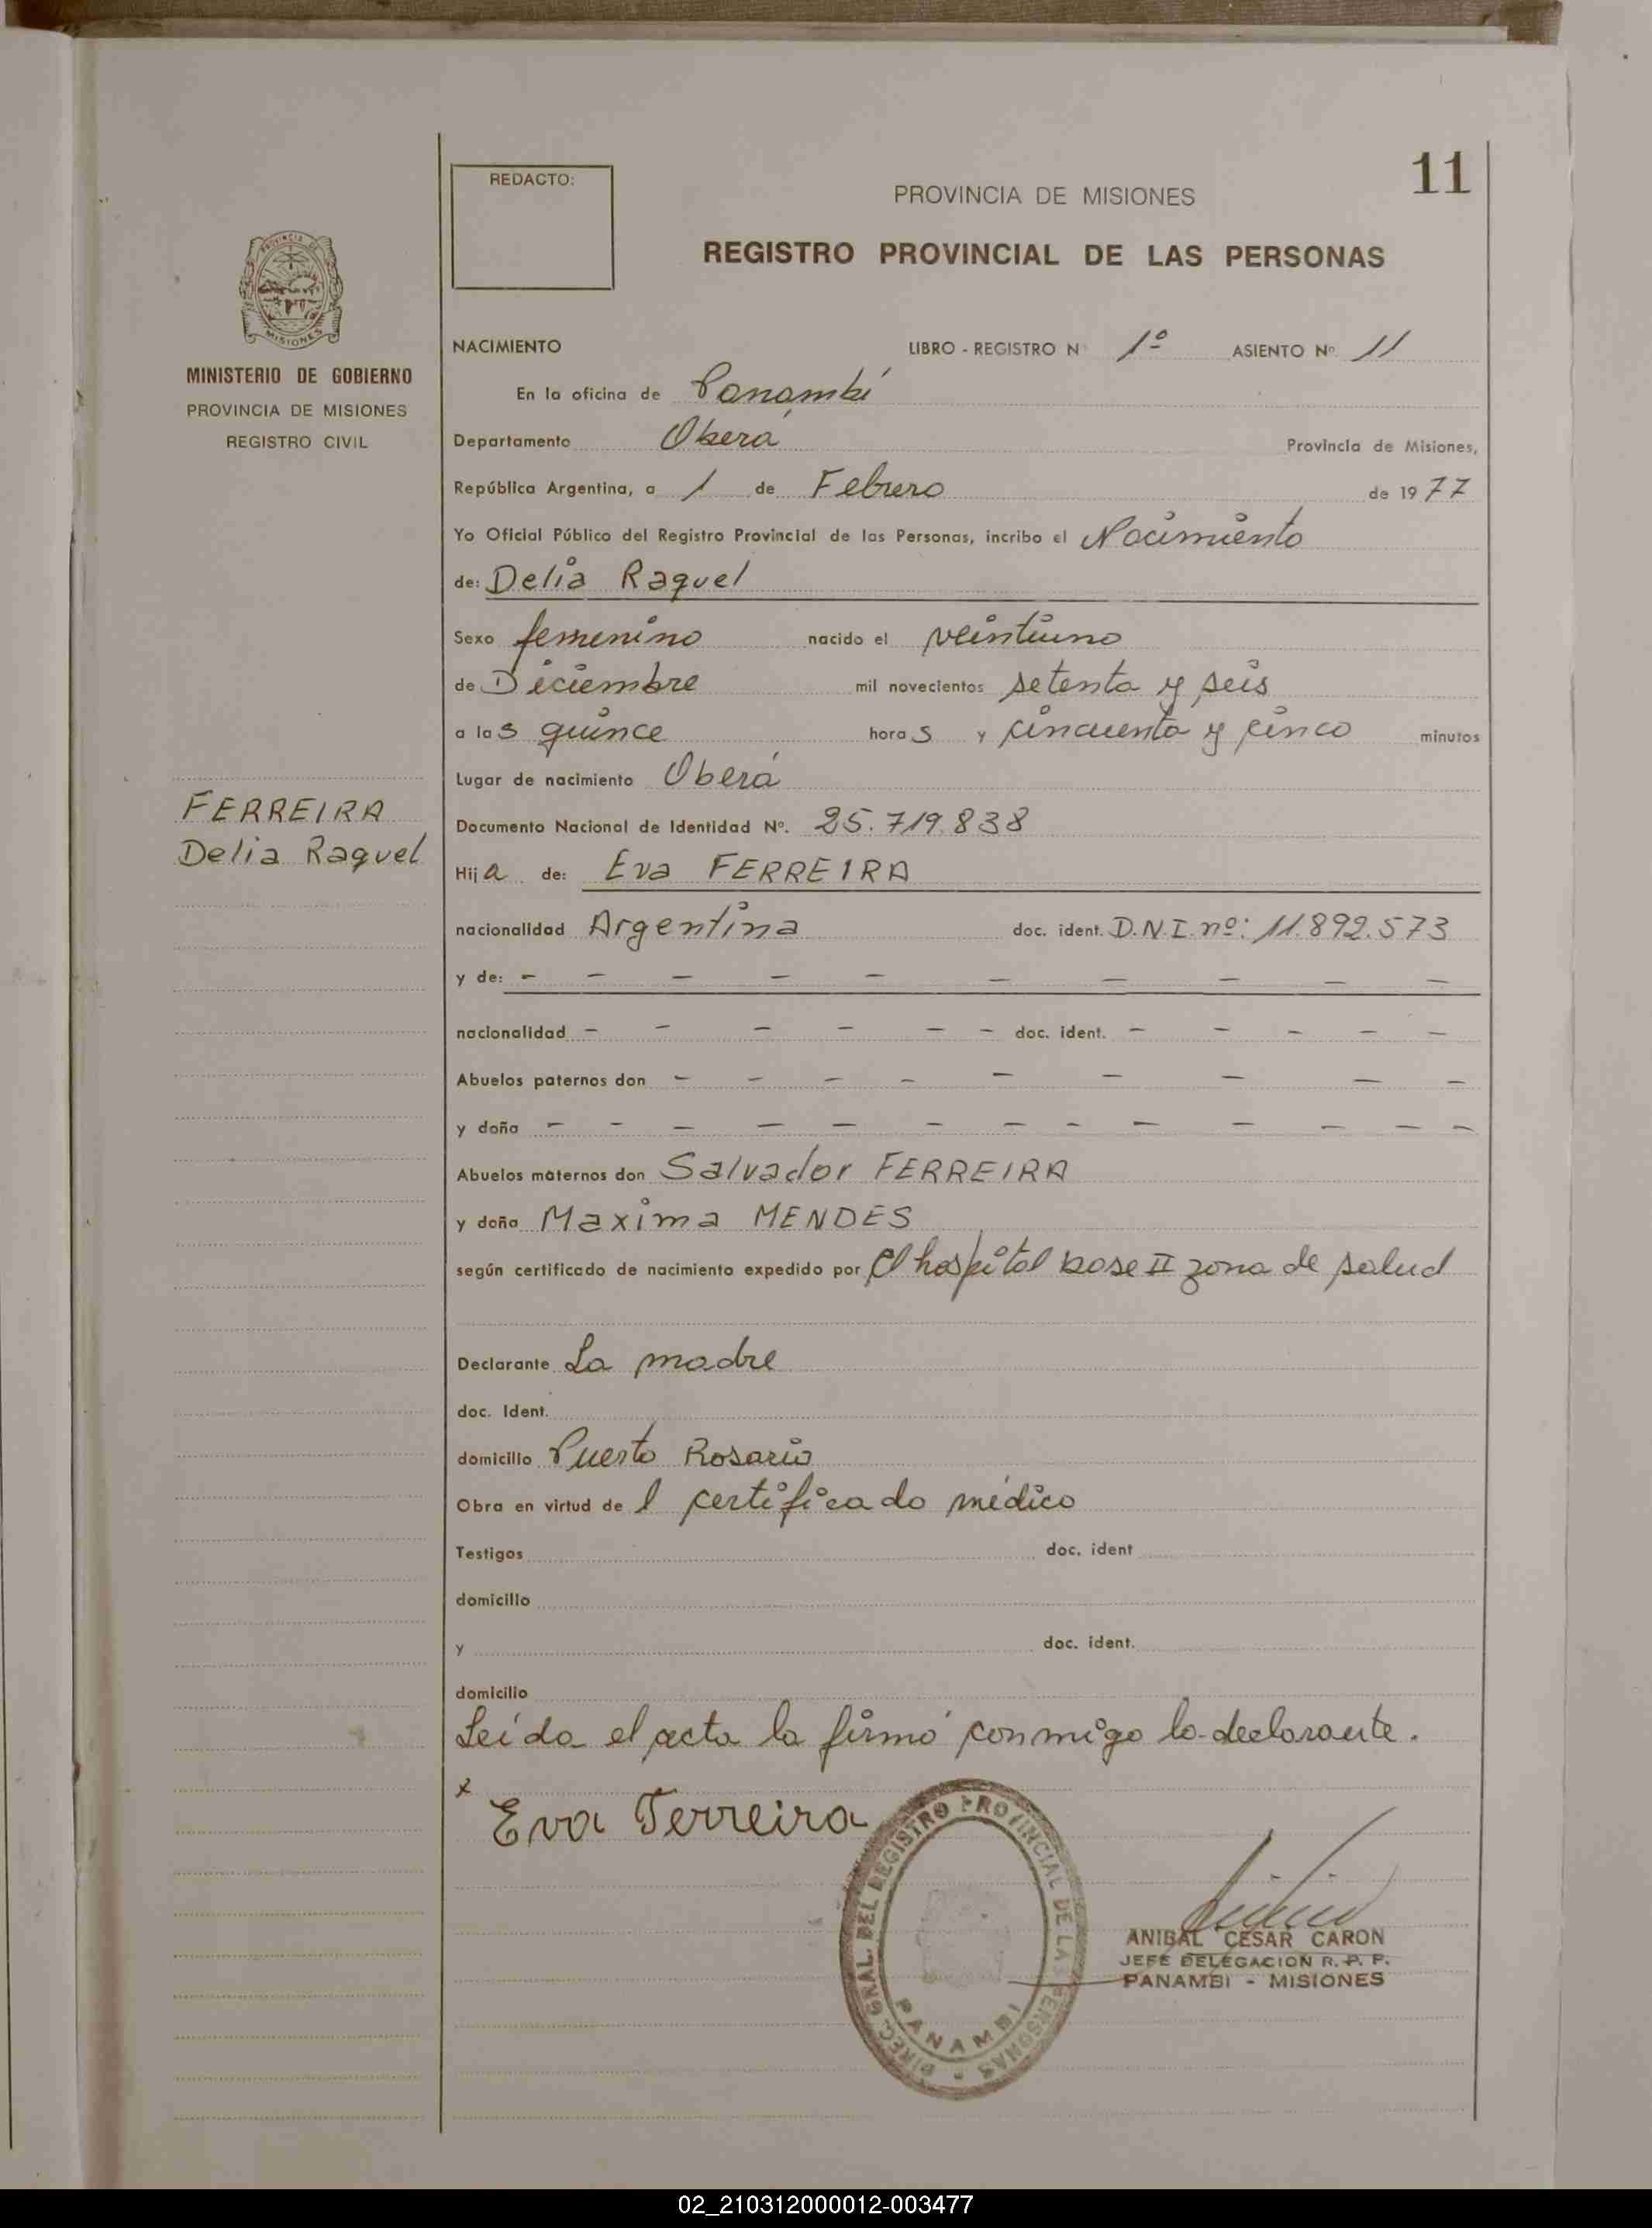 11
REDACTO:
PROVINCIA DE MISIONES
REGISTRO PROVINCIAL DE LAS PERSONAS
PROVINCIA DE
MISIONES
MINISTERIO DE GOBIERNO
PROVINCIA DE MISIONES
REGISTRO CIVIL
NACIMIENTO LIBRO - REGISTRO N 1º ASIENTO Nº 11
En la oficina de Panambí
Departamento Oberá Provincia de Misiones,
República Argentina, a 1 de Febrero de 1977
Yo Oficial Público del Registro Provincial de las Personas, incribo el Nacimiento
de: Delia Raquel
Sexo femenino nacido el veintiuno
de Diciembre mil novecientos setenta y seis
a las quince horas y cincuenta y cinco minutos
Lugar de nacimiento Oberá
FERREIRA
Delia Raquel
Documento Nacional de Identidad Nº. 25.719.838
Hija de: Eva FERREIRA
nacionalidad Argentina doc. ident. D.N.I. nº: 11.892.573
y de: - - - - - - - - - -
nacionalidad - - - - - - doc. ident. - - - - -
Abuelos paternos don - - - - - - - - -
y doña - - - - - - - - - - - - -
Abuelos maternos don Salvador FERREIRA
y doña Maxima MENDES
según certificado de nacimiento expedido por el hospital base II zona de salud
Declarante La madre
doc. Ident.
domicilio Puerto Rosario
Obra en virtud de l certificado médico
Testigos doc. ident
domicilio
y doc. ident.
domicilio
Leída el acta la firmó conmigo la declarante.
x
Eva Ferreira
DIREC. GRAL. DEL REGISTRO PROVINCIAL DE LAS PERSONAS -
PANAMBI
ANIBAL CESAR CARON
JEFE DELEGACION R. P. P.
PANAMBI - MISIONES
02_210312000012-003477